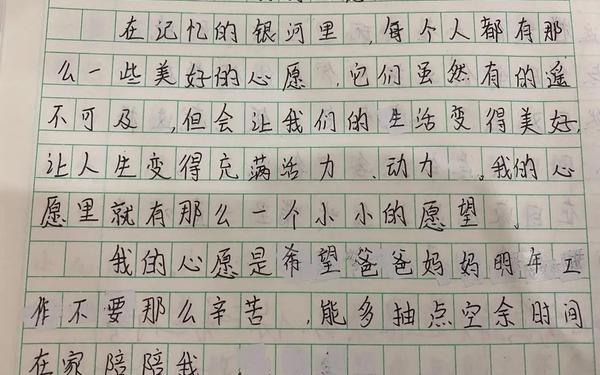 在记忆的银河里,每个人都有那
么一些美好的心愿,它们虽然有的遥
不可及,但会让我们的生活变得美好,
让人生变得充满活力、动力。我的心
愿里就有那么一个小小的愿望。
我的心愿是希望爸爸妈妈明年工
作不要那么辛苦,能多抽点空余时间
在家陪陪我